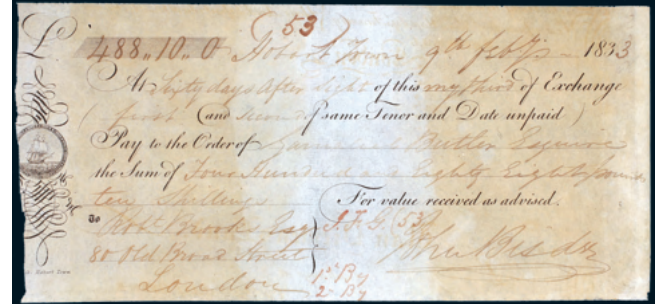 53
£ 488,,10,,0 Hobart Town 9th feby 1833
At Sixty days after Sight of this my third of Exchange
(first (and Second of same Tenor and Date unpaid)
Pay to the Order of Gamaliel Butler Esquire
the Sum of Four Hundred and Eighty Eight pounds
ten Shillings For value received as advised.
To Robt Brooks Esq J.F.G. (53)
80 Old Broad Street
London